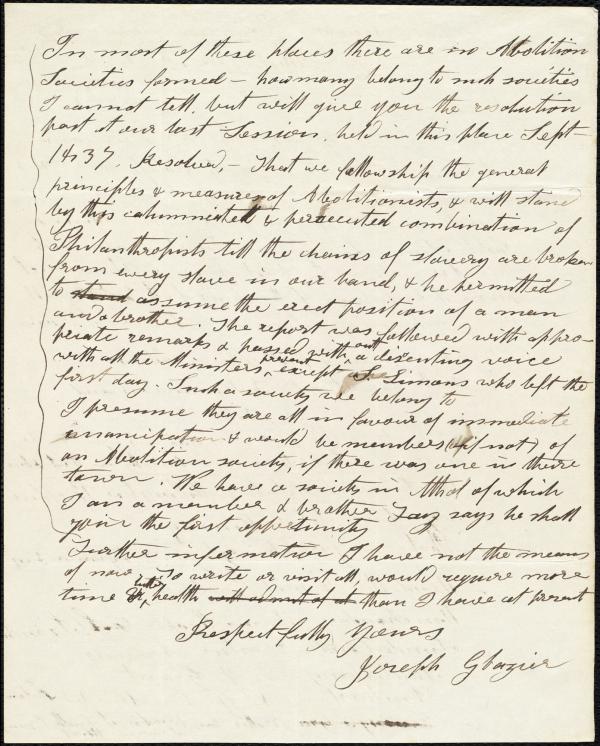 In most of these places there are no Abolition
Societies formed - how many belong to such societies
I cannot tell, but will give you the resolution
past at our last Session, held in this place Sept-
1837, Resolved, - That we fellowship the general
principles & measures of Abolitionists, & will stand
by this calumniated & persecuted combination of
Philanthropists till the chains of slavery are broken
from every slave in our land, & he permitted
to stand assume the erect position of a man
and a brother. The report was followed with appro-
priate remarks & passed with out a desenting voice
with all the Ministers present except S. Simons who left the
first day. Such a society we belong to
I presume they are all in favour of immediate
emancipation & would be members (if not) of
an Abolition society, if there was one in there
town. We have a society in Athol of which
I am a member & brother Jay says he shall
join the first oppertunity
Further information I have not the means
of now. To write or visit all, would require more
time & better health will admit of it than I have at present
Respectfully Yours
Joseph Glazier